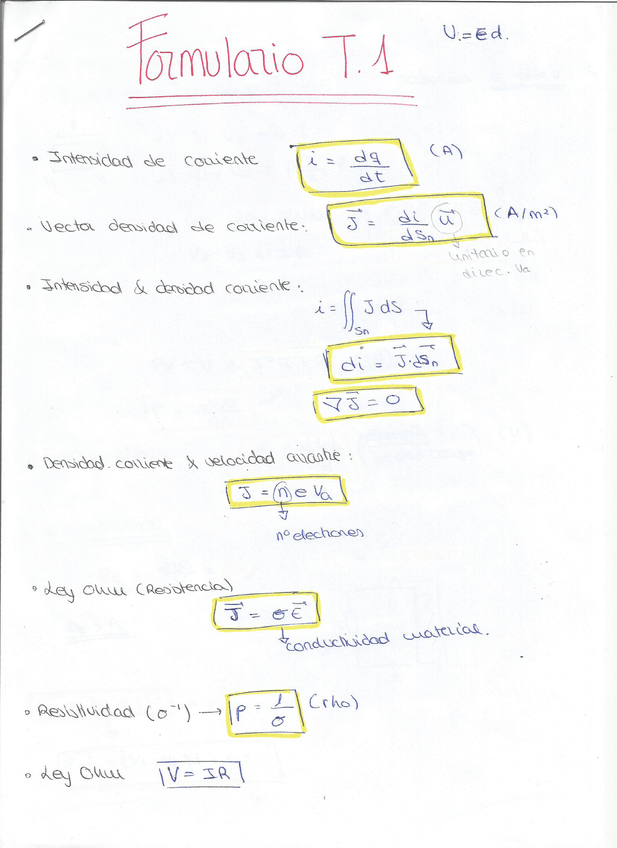 Formulario T.1
V = Ed.
• Intensidad de corriente i = dq/dt (A)
- Vector densidad de corriente: J⃗ = di/dSn u⃗ (A/m²)
Unitario en
direc. Va
• Intensidad & densidad corriente:
i = ∬Sn J dS
di = J⃗·dS⃗n
∇J⃗ = 0
• Densidad. corriente & velocidad arrastre:
J = n e Va
nº electrones
• Ley Ohm (Resistencia)
J⃗ = σE⃗
conductividad material.
• Resistividad (σ⁻¹) → ρ = 1/σ (rho)
• Ley Ohm V = IR